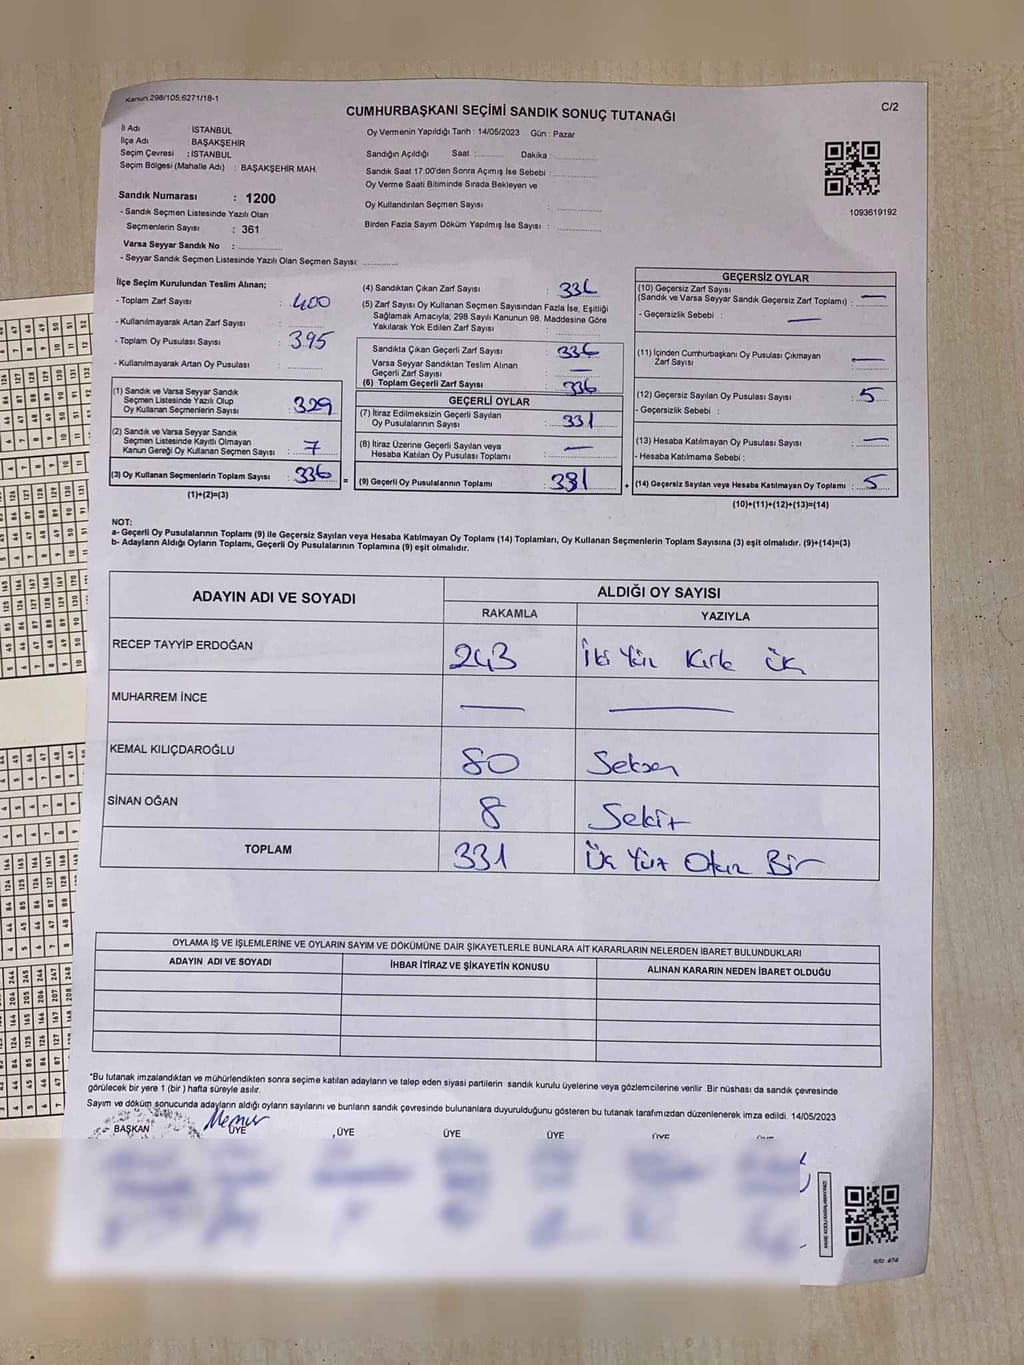 Kanun:298/105,6271/18-1
C/2
CUMHURBAŞKANI SEÇİMİ SANDIK SONUÇ TUTANAĞI
İl Adı : İSTANBUL
İlçe Adı : BAŞAKŞEHİR
Seçim Çevresi : İSTANBUL
Seçim Bölgesi (Mahalle Adı) : BAŞAKŞEHİR MAH.
Sandık Numarası : 1200
- Sandık Seçmen Listesinde Yazılı Olan
Seçmenlerin Sayısı : 361
Varsa Seyyar Sandık No :
- Seyyar Sandık Seçmen Listesinde Yazılı Olan Seçmen Sayısı:
Oy Vermenin Yapıldığı Tarih : 14/05/2023 Gün : Pazar
Sandığın Açıldığı Saat : Dakika :
Sandık Saat 17.00'den Sonra Açımış İse Sebebi :
Oy Verme Saati Bitiminde Sırada Bekleyen ve
Oy Kullandırılan Seçmen Sayısı :
Birden Fazla Sayım Döküm Yapılmış İse Sayısı :
1093619192
İlçe Seçim Kurulundan Teslim Alınan;
- Toplam Zarf Sayısı : 400
- Kullanılmayarak Artan Zarf Sayısı :
- Toplam Oy Pusulası Sayısı : 395
- Kullanılmayarak Artan Oy Pusulası :
(1) Sandık ve Varsa Seyyar Sandık
Seçmen Listesinde Yazılı Olup
Oy Kullanan Seçmenlerin Sayısı : 329
(2) Sandık ve Varsa Seyyar Sandık
Seçmen Listesinde Kayıtlı Olmayan
Kanun Gereği Oy Kullanan Seçmen Sayısı : 7
(3) Oy Kullanan Seçmenlerin Toplam Sayısı : 336
(1)+(2)=(3)
(4) Sandıktan Çıkan Zarf Sayısı : 336
(5) Zarf Sayısı Oy Kullanan Seçmen Sayısından Fazla İse, Eşitliği
Sağlamak Amacıyla, 298 Sayılı Kanunun 98. Maddesine Göre
Yakılarak Yok Edilen Zarf Sayısı :
Sandıkta Çıkan Geçerli Zarf Sayısı : 336
Varsa Seyyar Sandıktan Teslim Alınan
Geçerli Zarf Sayısı : —
(6) Toplam Geçerli Zarf Sayısı : 336
GEÇERLİ OYLAR
(7) İtiraz Edilmeksizin Geçerli Sayılan
Oy Pusulalarının Sayısı : 331
(8) İtiraz Üzerine Geçerli Sayılan veya
Hesaba Katılan Oy Pusulası Toplamı : —
= (9) Geçerli Oy Pusulalarının Toplamı : 331
GEÇERSİZ OYLAR
(10) Geçersiz Zarf Sayısı
(Sandık ve Varsa Seyyar Sandık Geçersiz Zarf Toplamı) : —
- Geçersizlik Sebebi : —
(11) İçinden Cumhurbaşkanı Oy Pusulası Çıkmayan
Zarf Sayısı : —
(12) Geçersiz Sayılan Oy Pusulası Sayısı : 5
- Geçersizlik Sebebi :
(13) Hesaba Katılmayan Oy Pusulası Sayısı : —
- Hesaba Katılmama Sebebi :
+ (14) Geçersiz Sayılan veya Hesaba Katılmayan Oy Toplamı : 5
(10)+(11)+(12)+(13)=(14)
NOT:
a- Geçerli Oy Pusulalarının Toplamı (9) ile Geçersiz Sayılan veya Hesaba Katılmayan Oy Toplamı (14) Toplamları, Oy Kullanan Seçmenlerin Toplam Sayısına (3) eşit olmalıdır. (9)+(14)=(3)
b- Adayların Aldığı Oyların Toplamı, Geçerli Oy Pusulalarının Toplamına (9) eşit olmalıdır.
ADAYIN ADI VE SOYADI ALDIĞI OY SAYISI
RAKAMLA YAZIYLA
RECEP TAYYİP ERDOĞAN 243 İki Yüz Kırk Üç
MUHARREM İNCE — —
KEMAL KILIÇDAROĞLU 80 Seksen
SİNAN OĞAN 8 Sekiz
TOPLAM 331 Üç Yüz Otuz Bir
OYLAMA İŞ VE İŞLEMLERİNE VE OYLARIN SAYIM VE DÖKÜMÜNE DAİR ŞİKAYETLERLE BUNLARA AİT KARARLARIN NELERDEN İBARET BULUNDUKLARI
ADAYIN ADI VE SOYADI İHBAR İTİRAZ VE ŞİKAYETİN KONUSU ALINAN KARARIN NEDEN İBARET OLDUĞU
*Bu tutanak imzalandıktan ve mühürlendikten sonra seçime katılan adayların ve talep eden siyasi partilerin sandık kurulu üyelerine veya gözlemcilerine verilir. Bir nüshası da sandık çevresinde
görülecek bir yere 1 (bir) hafta süreyle asılır.
Sayım ve döküm sonucunda adayların aldığı oyların sayılarını ve bunların sandık çevresinde bulunanlara duyurulduğunu gösteren bu tutanak tarafımızdan düzenlenerek imza edildi. 14/05/2023
Memur
BAŞKAN ÜYE ÜYE ÜYE ÜYE ÜYE